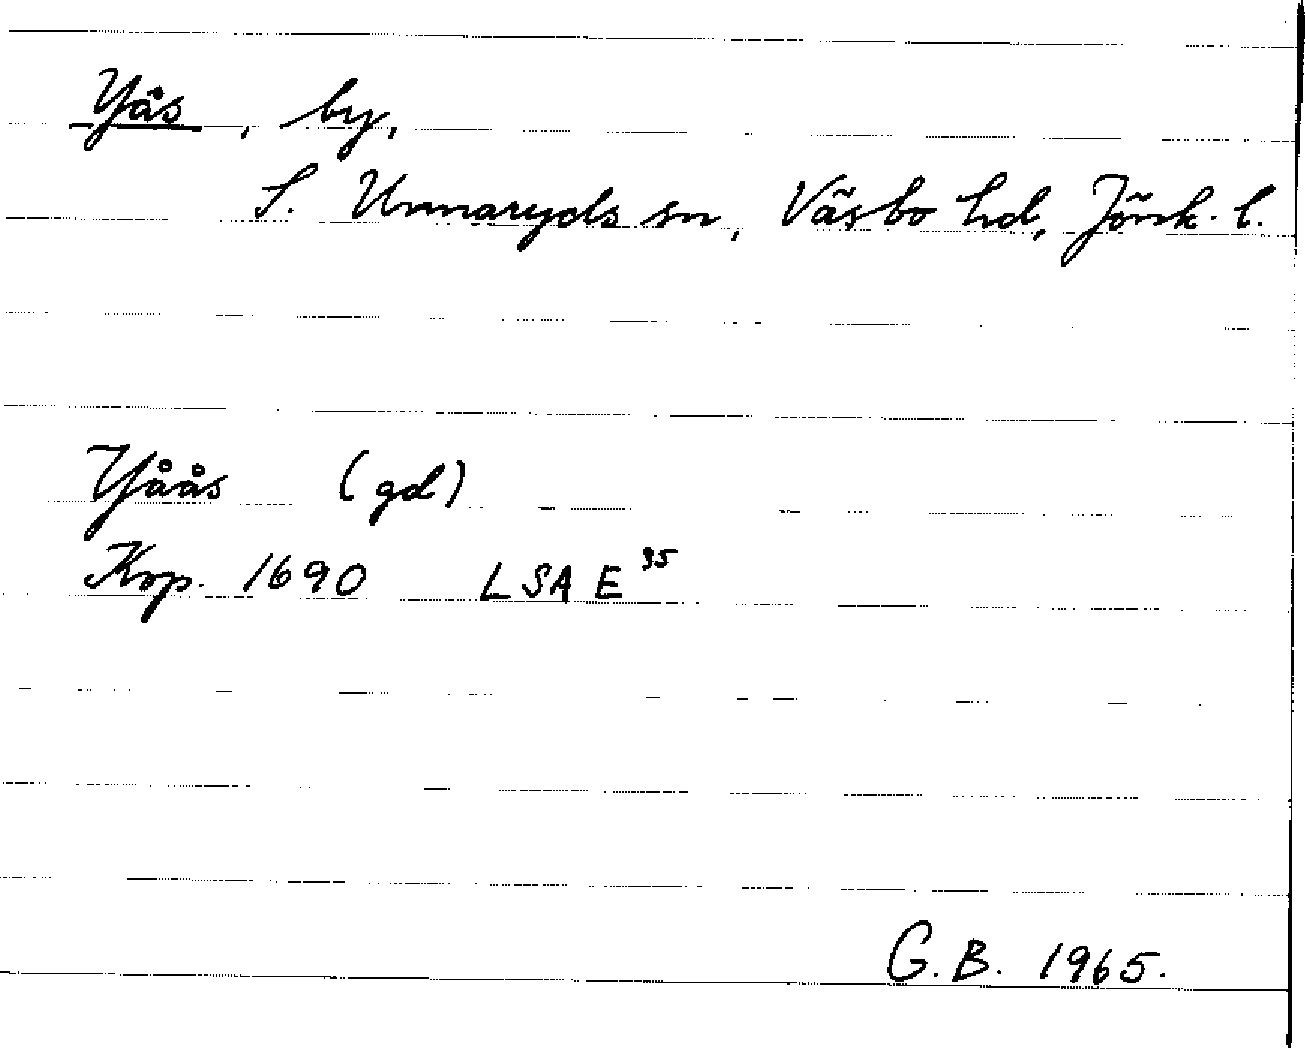 Yås, by,
S. Unnaryds sn, Västbo hd, Jönk. l.
Yåås (gd)
Kop. 1690 LSA E³⁵
G.B. 1965.